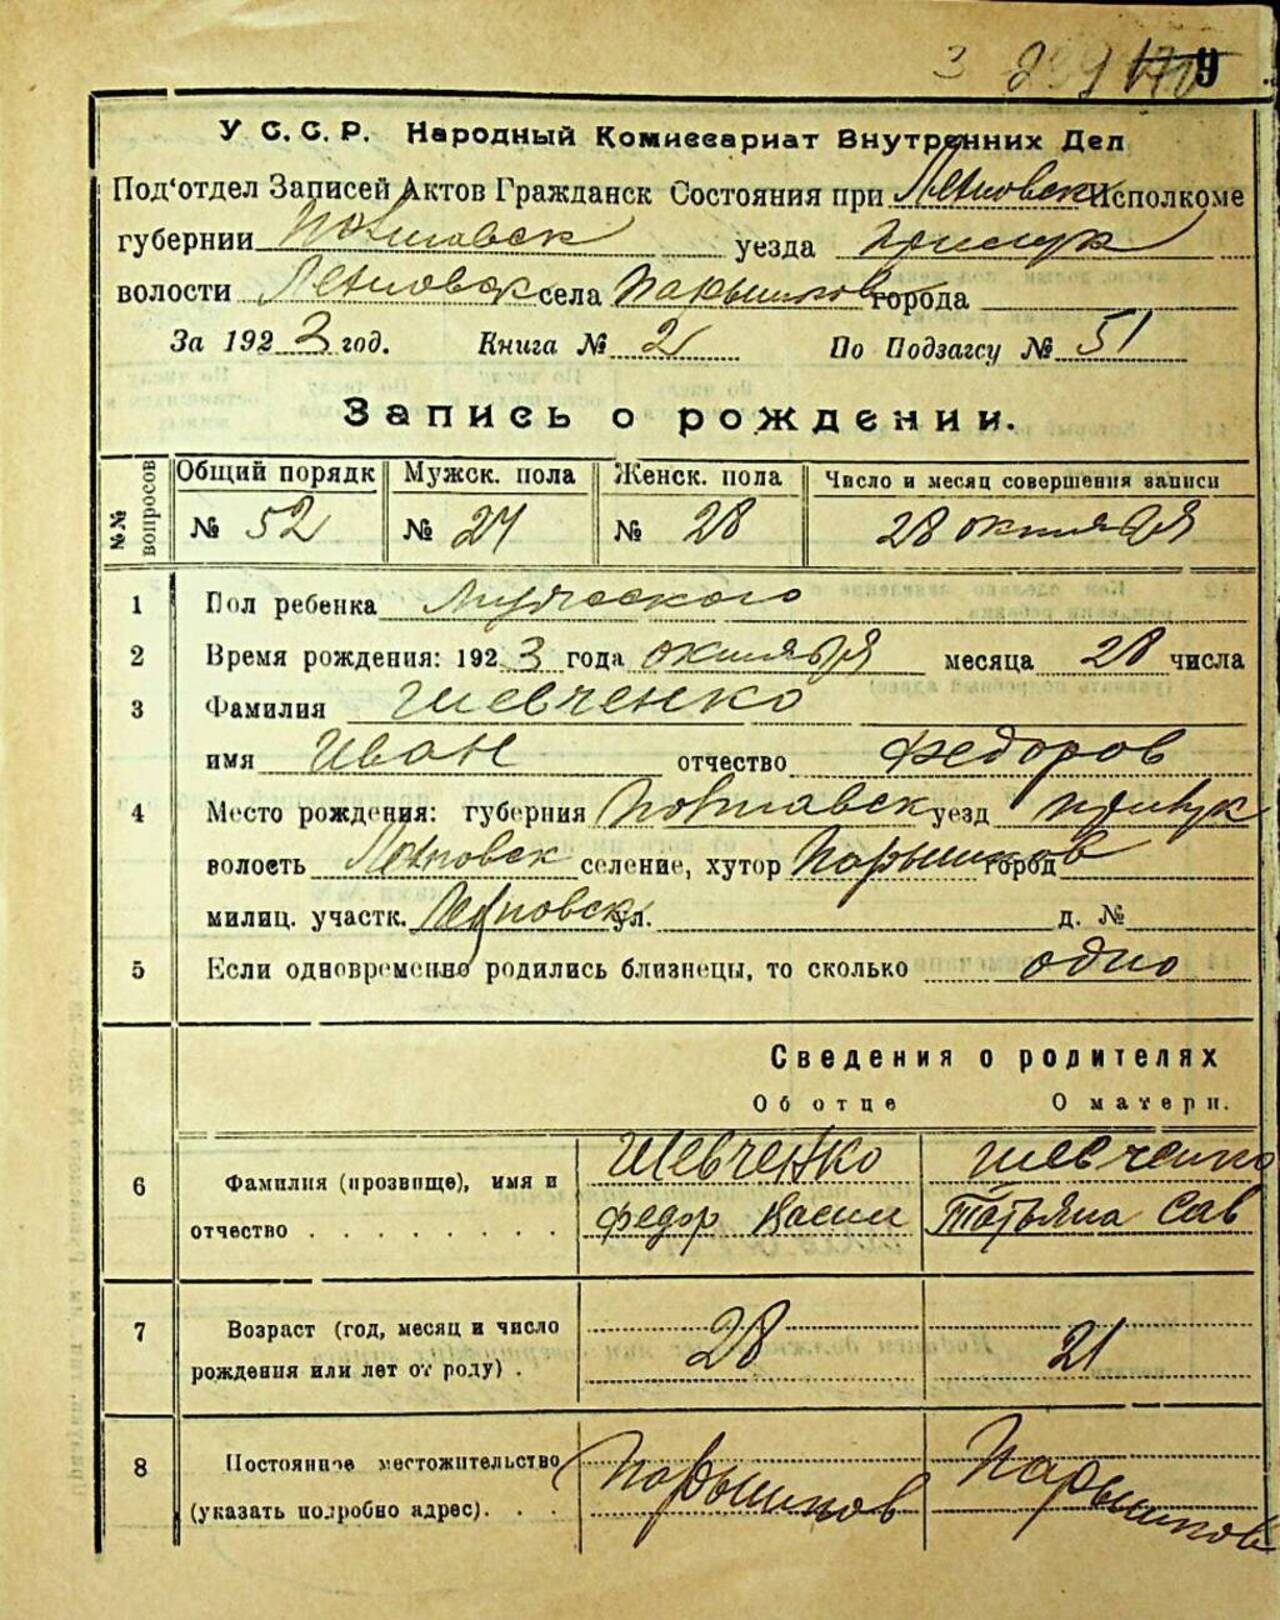 У С. С. Р. Народный Комиссариат Внутренних Дел
Под'отдел Записей Актов Гражданск Состояния при Исполкоме
губернии Повтавск уезда Прилук
волости села Парышков города
За 1923 год. Книга № 2 По Подзагсу № 51
Запись о рождении.
№№ вопросов
Общий порядк Мужск. пола Женск. пола Число и месяц совершения записи
№ 52 № 24 № 28 28 октября
1 Пол ребенка Мужеского
2 Время рождения: 1923 года октября месяца 28 числа
3 Фамилия Шевченко
имя Иван отчество Федоров
4 Место рождения: губерния Повтавск уезд Прилук
волость селение, хутор Парышков город
милиц. участк. ул. д. №
5 Если одновременно родились близнецы, то сколько одно
Сведения о родителях
Об отце О матери.
6 Фамилия (прозвище), имя и Шевченко Шевченко
отчество . . . . . . . . Федор Васил Татьяна Сав
7 Возраст (год, месяц и число
рождения или лет от роду) . 28 21
8 Постоянное местожительство Парышков Парышков
(указать подробно адрес). . .